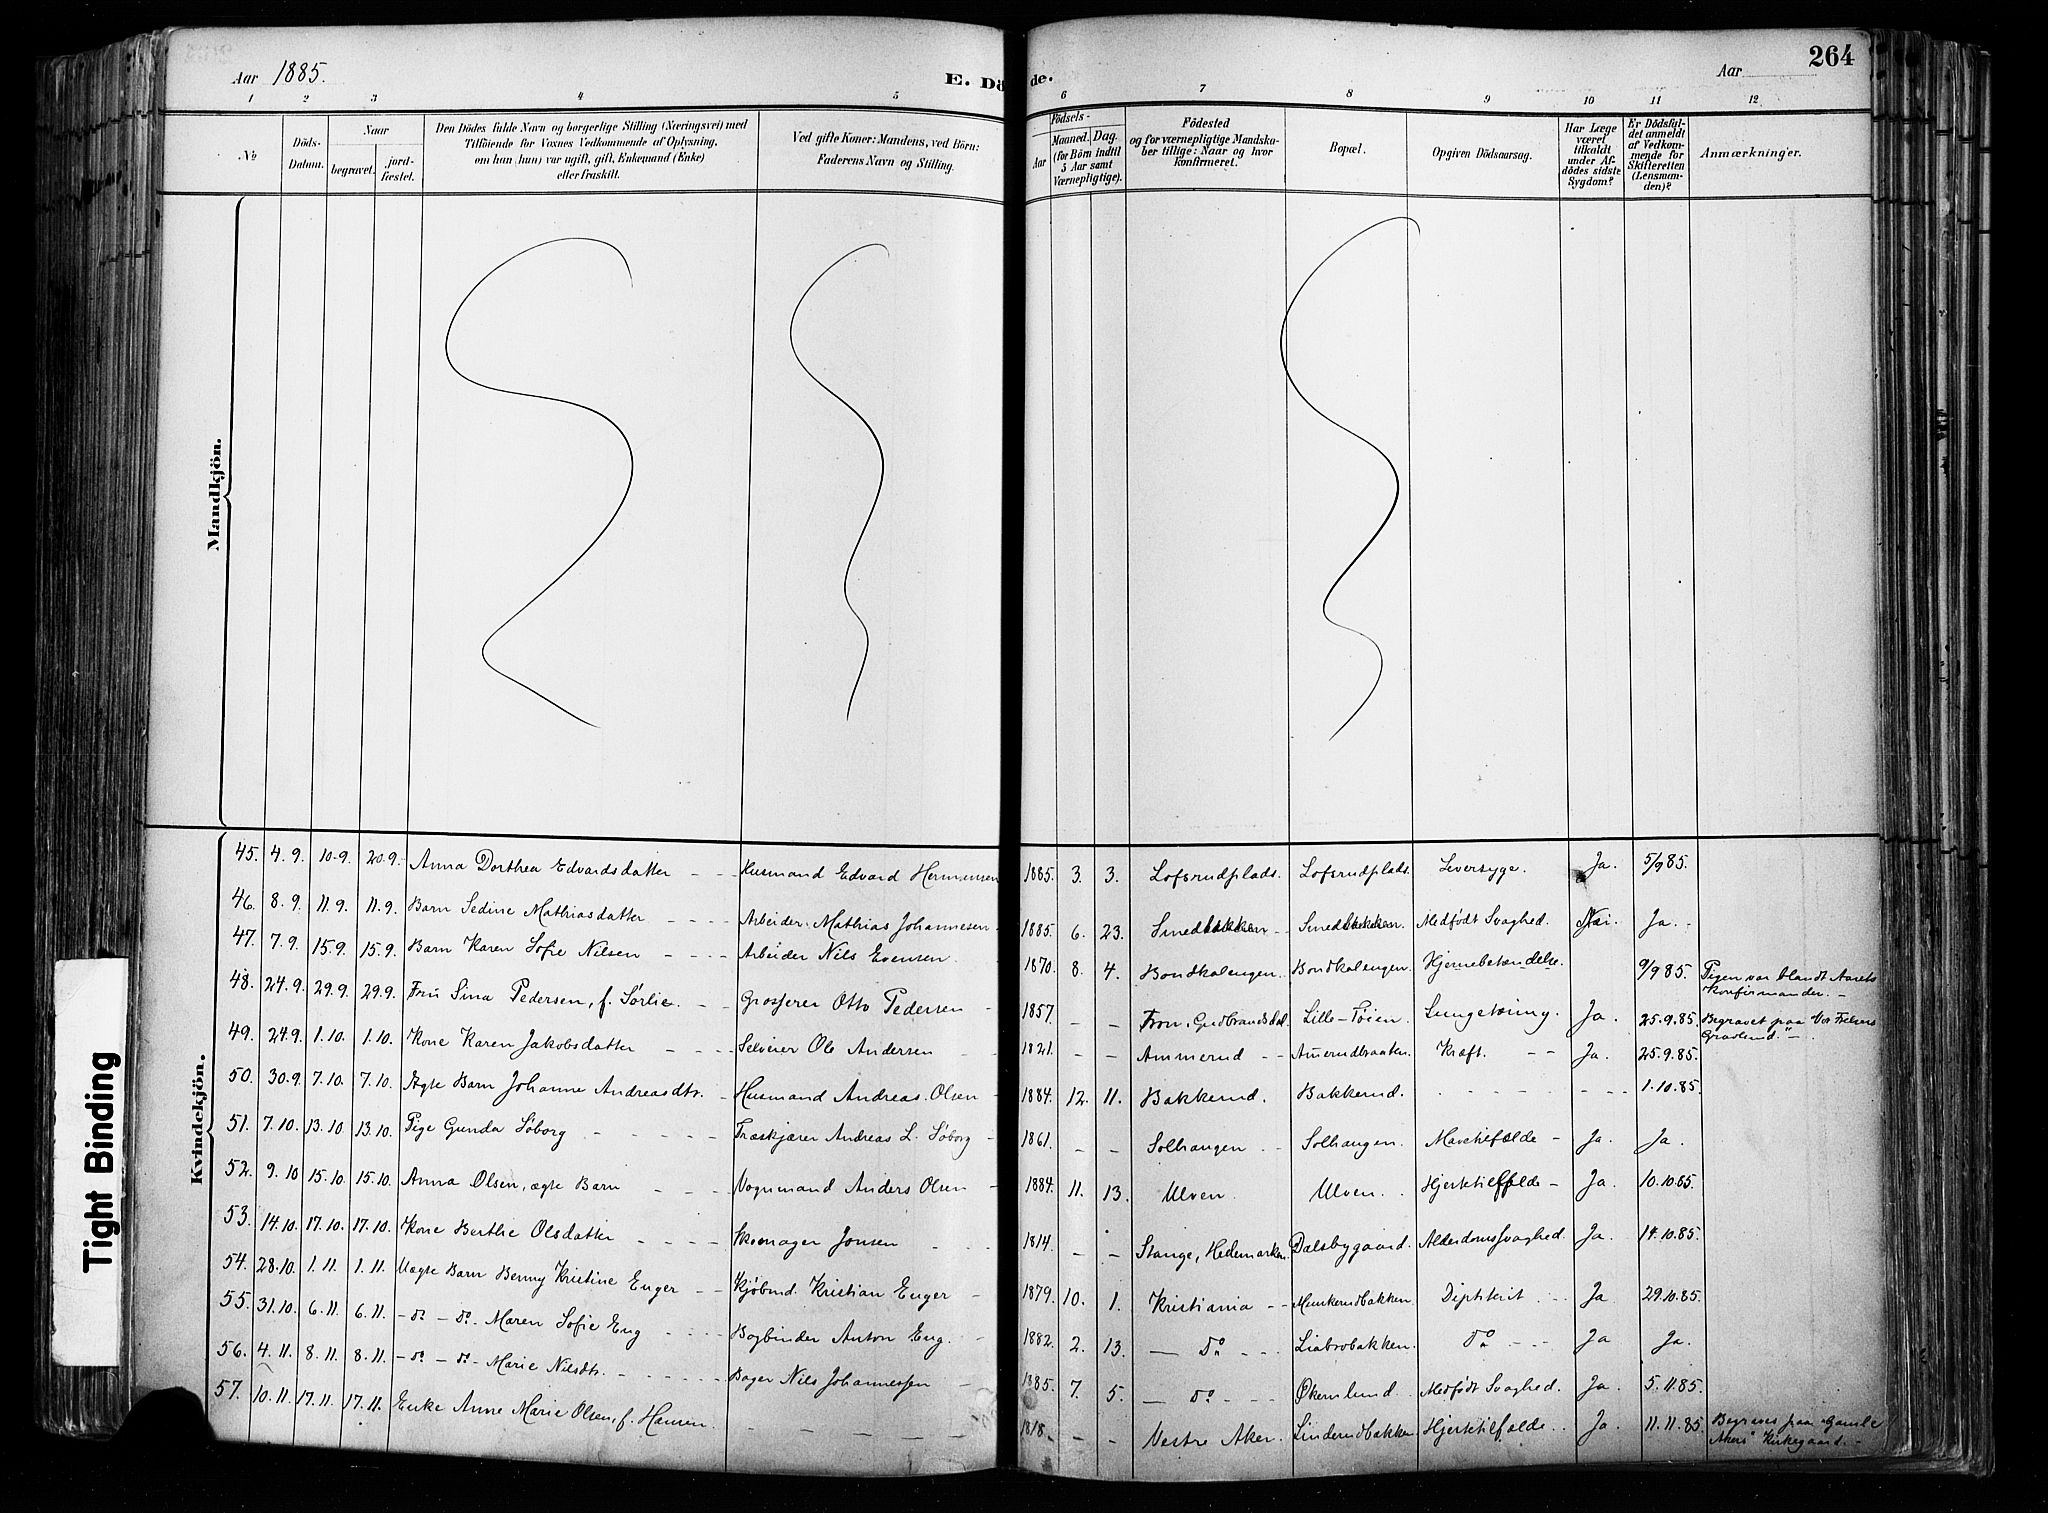 264
Aar 1885.
E. Dö
de.
Aar
1 2 3 4 5 6 7 8 9 10 11 12
No
Döds-Datum.
Naar
begravet.
jord-fæstet.
Den Dödes fulde Navn og borgerlige Stilling (Næringsvei) med
Tilföiende for Voxnes Vedkommende af Oplysning,
om han (hun) var ugift, gift, Enkemand (Enke)
eller fraskilt.
Ved gifte Koner: Mandens, ved Börn:
Faderens Navn og Stilling.
Födsels-
Aar
Maaned. Dag.
(for Börn indtil
5 Aar samt
Værnepligtige).
Födested
og for værnepligtige Mandska-
ber tillige: Naar og hvor
konfirmeret.
Bopæl.
Opgiven Dödsaarsag.
Har Læge
været
tilkaldt
under Af-
dödes sidste
Sygdom?
Er Dödsfal-
det anmeldt
af Vedkom-
mende for
Skifteretten
(Lensman-
den)?
Anmærkninger.
Mandkjön.
Kvindekjön.
45. 4.9. 10.9. 20.9. Anna Dorthea Edvardsdatter Husmand Edvard Hermansen 1885. 3. 3. Lofsrudplads. Lofsrudplads. Leversyge. Ja. 5/9 85.
46. 8.9. 11.9. 11.9. Barn Sedine Mathiasdatter Arbeider Mathias Johannesen 1885. 6. 23. Smedbakken Smedbakken. Medfödt Svaghed. Nei Ja.
47. 7.9. 15.9. 15.9. Barn Karen Sofie Nilsen Arbeider Nils Evensen 1870. 8. 4. Bondkalengen. Bondkalengen. Hjernebetændelse. 9/9 85. Pigen var blandt Aarets Konfirmander.
48. 24.9. 29.9. 29.9. Fru Sina Pedersen, f. Sørlie. Grosserer Otto Pedersen 1857. - - Fron, Gudbrandsdal. Lille-Tøien. Lungetæring. Ja. 25.9.85. Begravet paa Vor Frelsers Gravlund.
49. 24.9. 1.10. 1.10. Kone Karen Jakobsdatter Selveier Ole Andersen 1821. - - Ammerud Amerudbraaten. Kræft. Ja. 25.9.85.
50. 30.9. 7.10. 7.10. Ægte Barn Johanne Andreasdtr. Husmand Andreas Olsen 1884. 12. 11. Bakkerud. Bakkerud. 1.10.85.
51. 7.10. 13.10. 13.10. Pige Gunda Söborg Træskjærer Andreas L. Söborg 1861. - - Solhaugen Solhaugen. Mavetilfælde Ja. Ja.
52. 9.10 15.10. 15.10. Anna Olsen, ægte Barn Vognmand Anders Olsen 1884. 11. 13. Ulven. Ulven. Hjertetilfælde Ja. 10.10.85.
53. 14.10. 17.10. 17.10. Kone Berthe Olsdatter Skomager Jonsen 1814. - - Stange, Hedemarken. Dalsbygaard. Alderdomssvaghed. Ja. 14.10.85.
54. 28.10. 1.11. 1.11. Uægte Barn Benny Kristine Enger Kjöbmd. Kristian Enger 1879. 10. 1. Kristiania Munkerudbakken. Diphterit Ja 29.10.85.
55. 31.10. 6.11. 6.11. - Do - Do. Maren Sofie Eng Bogbinder Anton Eng. 1882. 2. 13. - Do Liabrobakken. Do Ja Ja.
56. 4.11. 8.11. 8.11. - Do - Do - Marie Nilsdtr. Bager Nils Johannessen 1885. 7. 5. - Do Økernlund. Medfödt Svaghed. Ja. 5.11.85.
57. 10.11. 17.11. 17.11. Enke Anne Marie Olsen, f. Hansen. 1818. - - Vestre Aker. Linderudbakken Hjertetilfælde. Ja. 11.11.85. Begraves paa Gamle Akers Kirkegaard.
Tight Binding